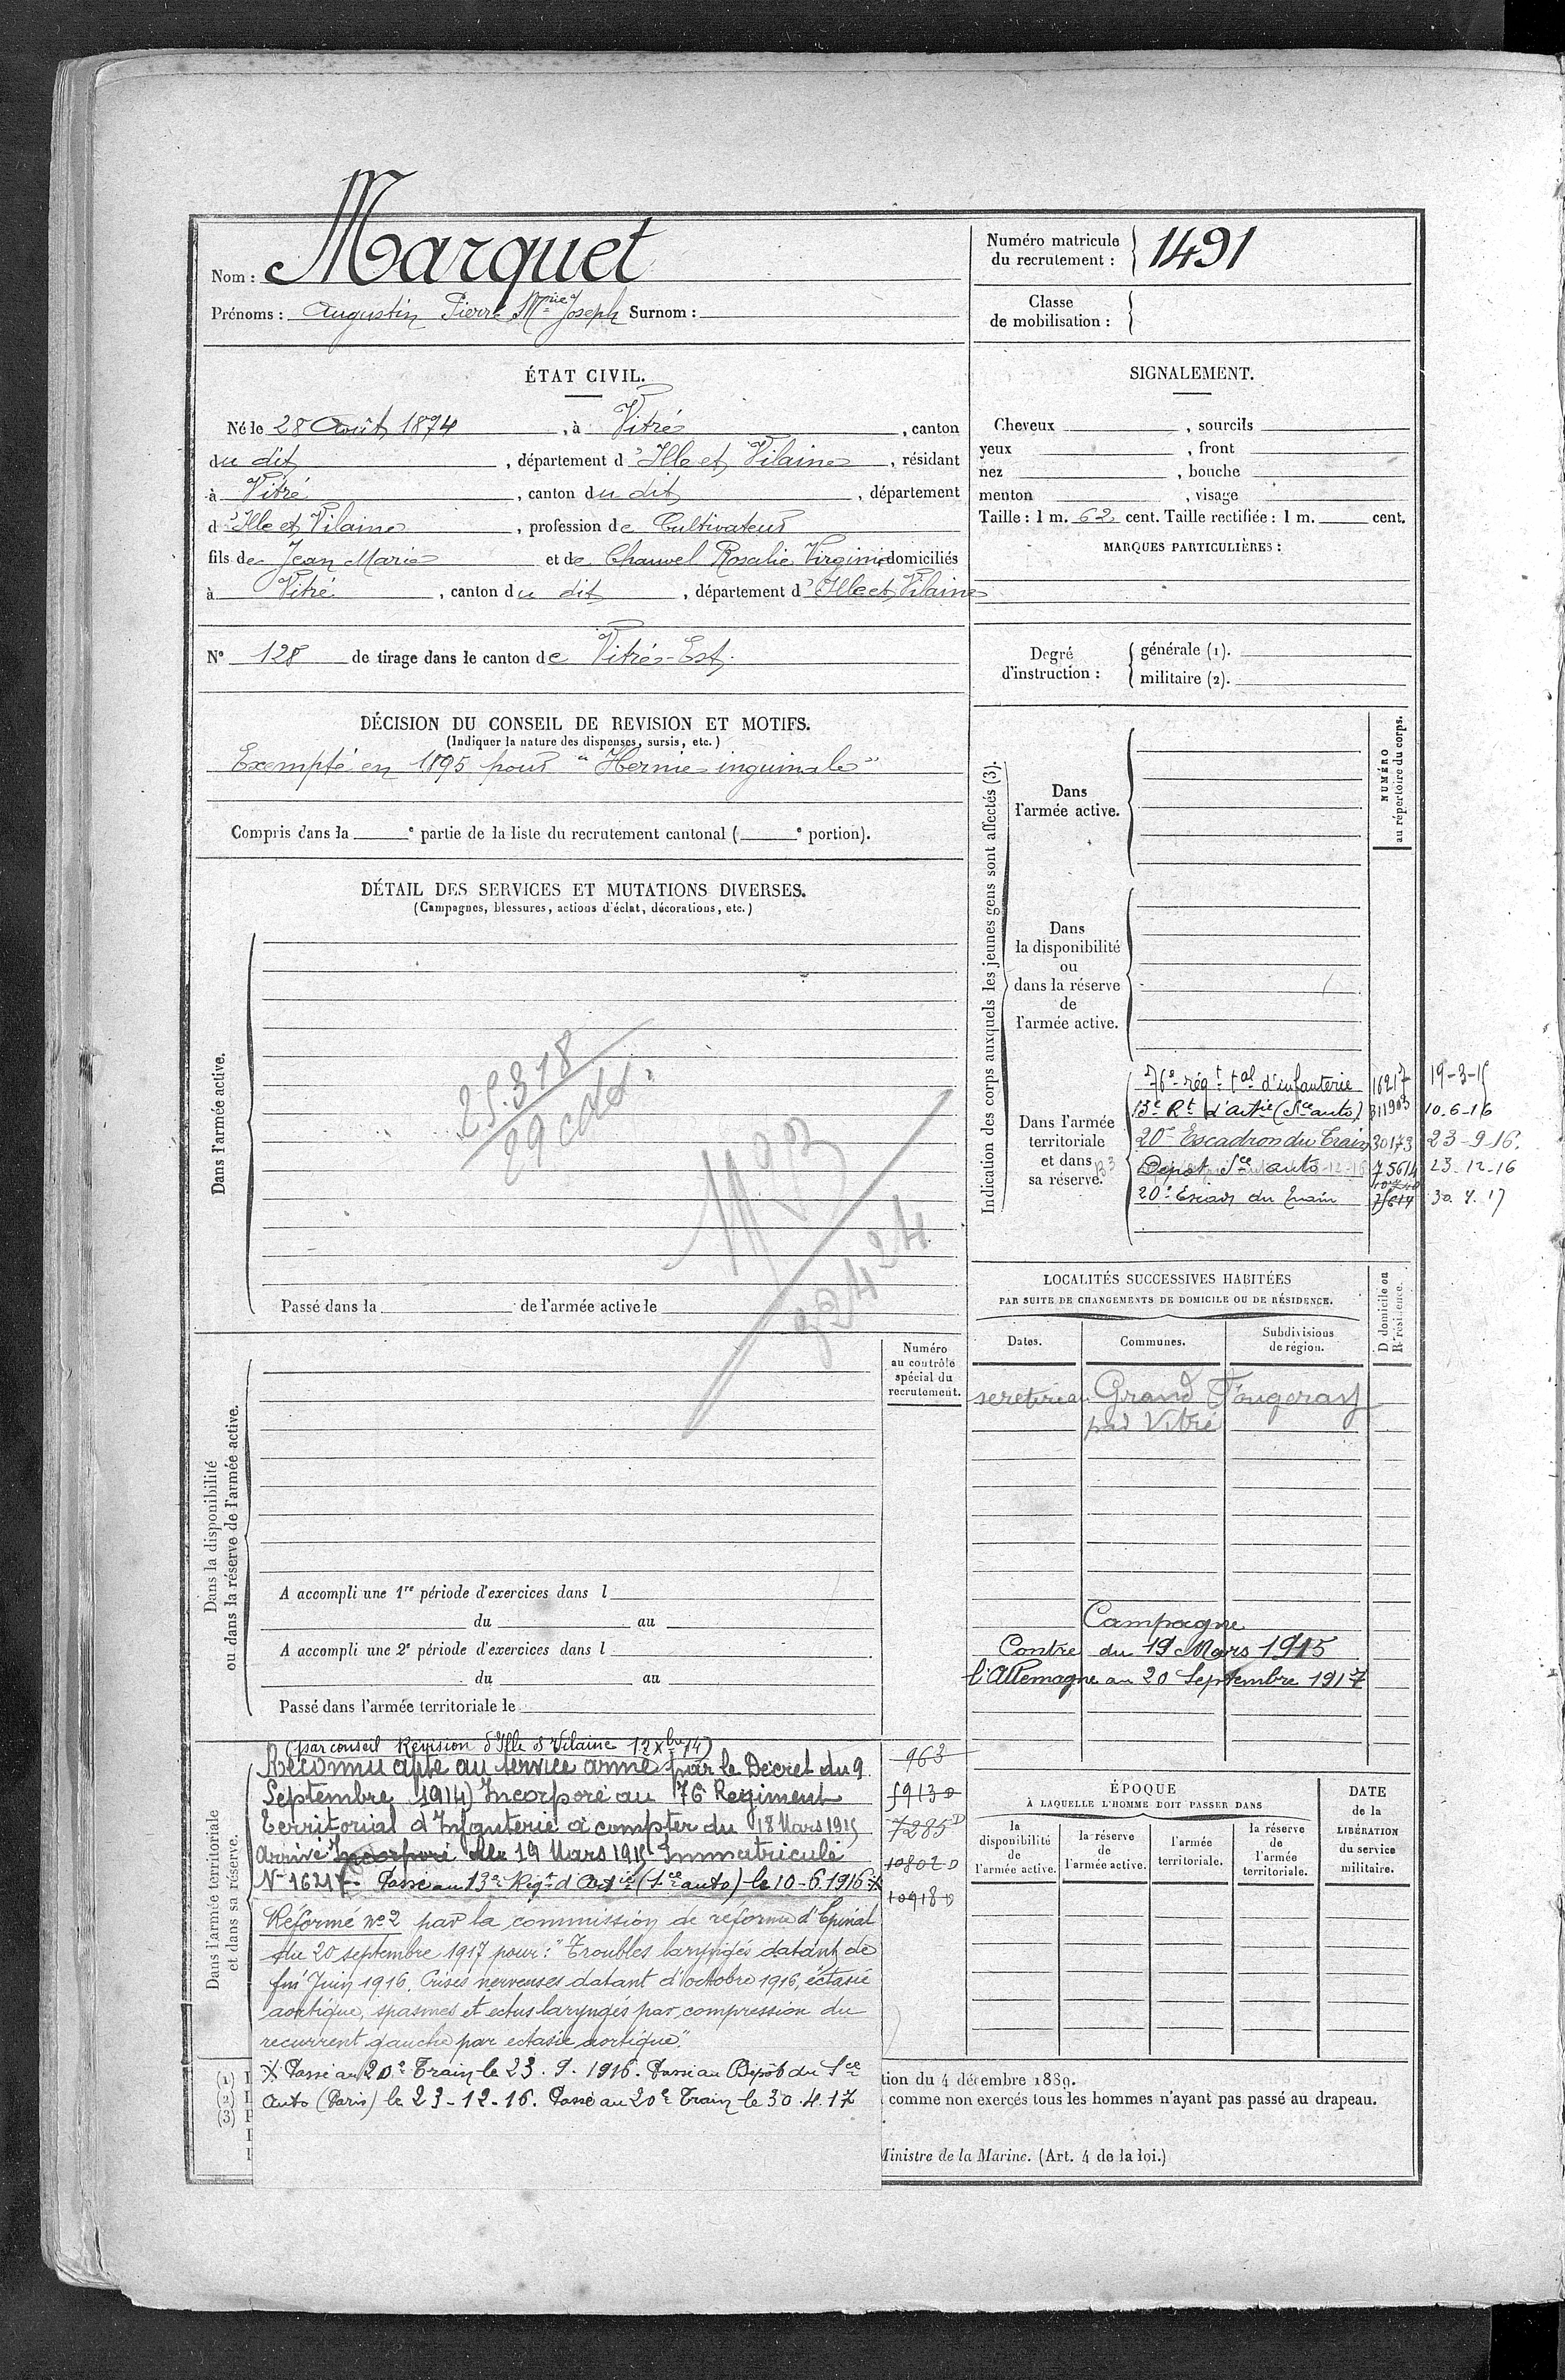 Nom : Marquet
Prénoms : Augustin Pierre Mrie Joseph Surnom :
Numéro matricule du recrutement : 1491
Classe de mobilisation :
ÉTAT CIVIL.
Né le 28 Août 1874, à Vitré, canton
du dit, département d'Ille et Vilaine, résidant
à Vitré, canton du dit, département
d'Ille et Vilaine, profession de Cultivateur
fils de Jean Marie et de Chauvel Rosalie Virginie domiciliés
à Vitré, canton du dit, département d'Ille et Vilaine
N° 128 de tirage dans le canton de Vitré-Est.
DÉCISION DU CONSEIL DE REVISION ET MOTIFS.
(Indiquer la nature des dispenses, sursis, etc.)
Exempté en 1895 pour "Hernie inguinale"
Compris dans la e partie de la liste du recrutement cantonal ( e portion).
DÉTAIL DES SERVICES ET MUTATIONS DIVERSES.
(Campagnes, blessures, actions d'éclat, décorations, etc.)
Dans l'armée active.
25.318
Passé dans la de l'armée active le
Numéro
au contrôle
spécial du
recrutement.
Dans la disponibilité
ou dans la réserve de l'armée active.
A accompli une 1re période d'exercices dans l
du au
A accompli une 2e période d'exercices dans l
du au
Passé dans l'armée territoriale le
Dans l'armée territoriale
et dans sa réserve.
(par conseil Révision d'Ille et Vilaine 12 Xbre 14)
Reconnu apte au service armé par le Décret du 9
Septembre 1914) Incorporé au 76 Régiment
Territorial d'Infanterie à compter du 18 Mars 1915
arrivé Incorporé le 19 Mars 1915 Immatriculé
N° 16217. Passé au 13e Régt d'Artie (Sce auto) le 10-6-1916 X
Réformé n°2 par la commission de réforme d'Epinal
du 20 septembre 1917 pour : "Troubles laryngés datant de
fin Juin 1916. Crises nerveuses datant d'octobre 1916, éctasie
aortique, spasmes et ectus laryngés par compression du
recurrent gauche par ectasie aortique".
X Passé au 20e Train le 23.9.1916. Passé au Dépôt du Sce
auto (Paris) le 23-12-16. Passé au 20e Train le 30.4.17
963
5913 D
7285 D
10802 D
10918 D
(1)
(2)
(3)
SIGNALEMENT.
Cheveux , sourcils
yeux , front
nez , bouche
menton , visage
Taille : 1 m. 62 cent. Taille rectifiée : 1 m. cent.
MARQUES PARTICULIÈRES :
Degré d'instruction :
générale (1).
militaire (2).
Indication des corps auxquels les jeunes gens sont affectés (3).
NUMÉRO
au répertoire du corps.
Dans
l'armée active.
Dans
la disponibilité
ou
dans la réserve
de
l'armée active.
Dans l'armée
territoriale
et dans
sa réserve.
76e régt tal d'infanterie 16217 19-3-15
13e Rt d'artie (Sce auto) 10.6-16
20e Escadron du Train 30173 23-9-16.
Dépôt Sce auto 75614 23-12-16
20e Escad du train 75614 30.4.17
LOCALITÉS SUCCESSIVES HABITÉES
PAR SUITE DE CHANGEMENTS DE DOMICILE OU DE RÉSIDENCE.
D domicile ou
R résidence.
Dates. Communes. Subdivisions
de région.
Grand Fougeray
par Vitré
Campagne
Contre du 19 Mars 1915
l'Allemagne au 20 Septembre 1917
ÉPOQUE
À LAQUELLE L'HOMME DOIT PASSER DANS
la
disponibilité
de
l'armée active.
la réserve
de
l'armée active.
l'armée
territoriale.
la réserve
de
l'armée
territoriale.
DATE
de la
LIBÉRATION
du service
militaire.
tion du 4 décembre 1889.
comme non exercés tous les hommes n'ayant pas passé au drapeau.
Ministre de la Marine. (Art. 4 de la loi.)